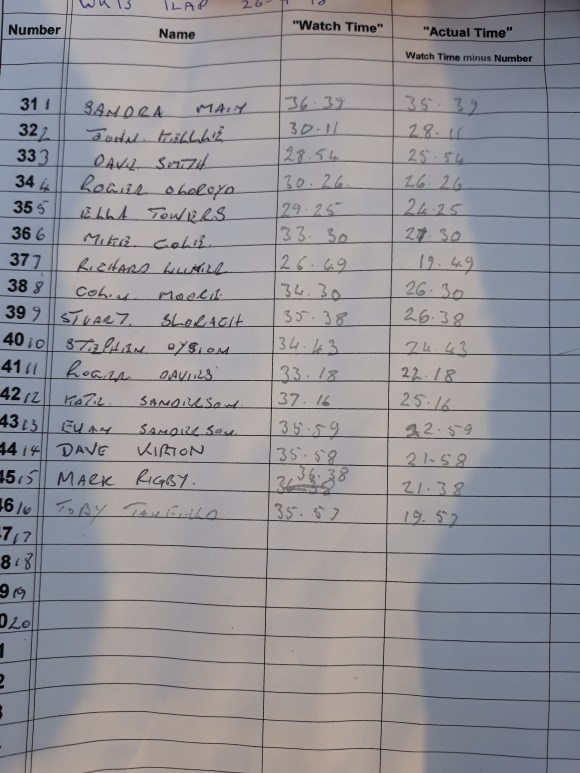 WK 13 1LAP
Number Name "Watch Time" "Actual Time"
Watch Time minus Number
31 1 SANDRA 36.39 35.39
32 2 JOHN 30.11 28.11
33 3 DAVE SMITH 28.54 25.54
34 4 ROGER 30.26 26.26
35 5 ELLA TOWERS 29.25 24.25
36 6 MIKE COLE 33.30 27.30
37 7 RICHARD 26.49 19.49
38 8 COLIN MOORE 34.30 26.30
39 9 STUART 35.38 26.38
40 10 STEPHEN 34.43 24.43
41 11 ROGER DAVIES 33.18 22.18
42 12 KATE SANDERSON 37.16 25.16
43 13 EUAN SANDERSON 35.59 22.59
44 14 DAVE 35.58 21.58
45 15 MARK RIGBY. 36.38 21.38
46 16 TOBY 35.57 19.57
7 17
8 18
9 19
0 20
1
2
3